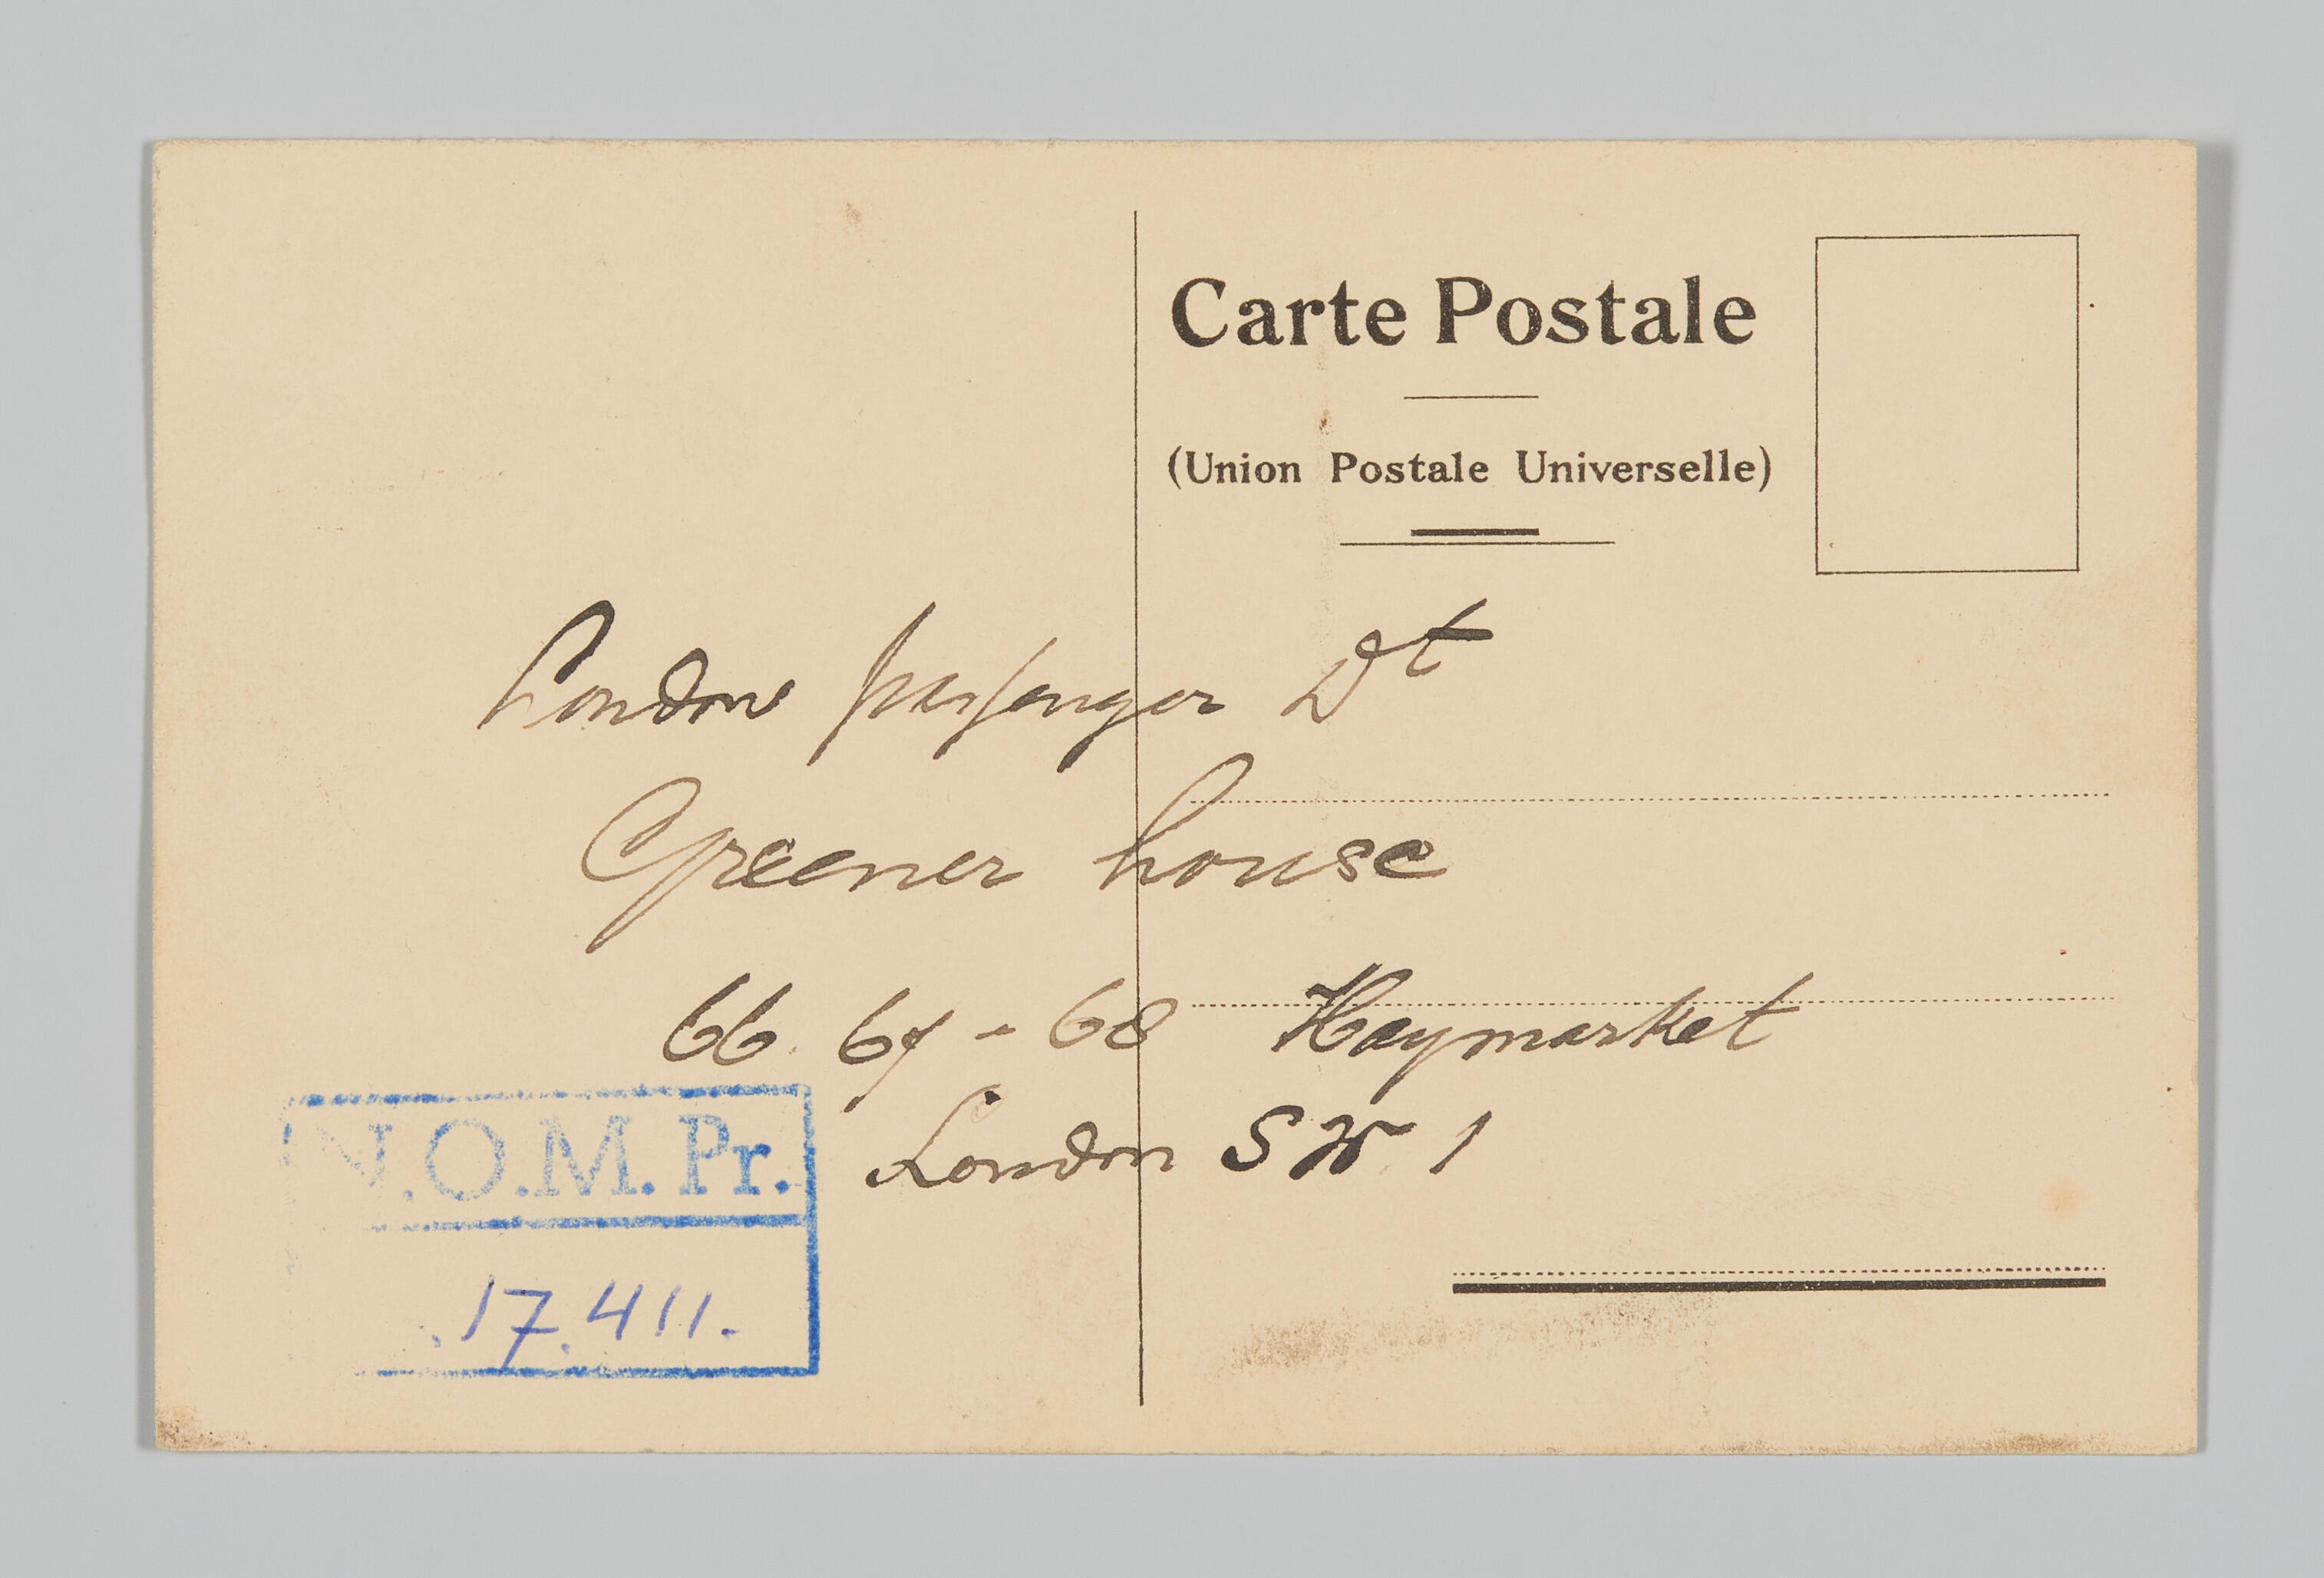 Carte Postale
(Union Postale Universelle)
London passenger Dt
Greener house
66. 67 - 68 Haymarket
London S W. 1
N.O.M. Pr.
17.411.